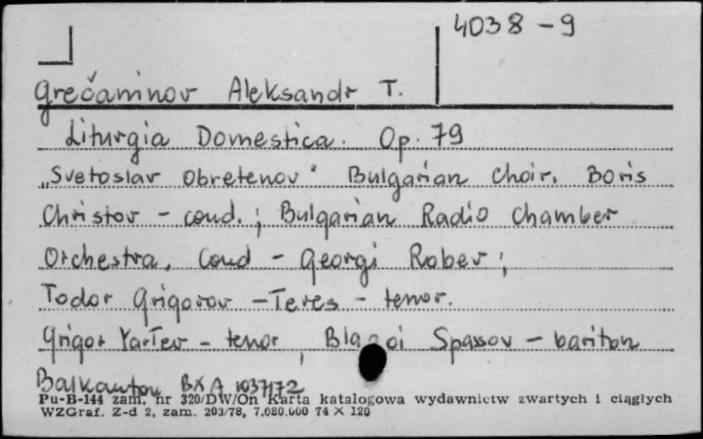 4038-9
Grečaninov Aleksandr T.
Liturgia Domestica. Op. 79
„Svetoslav Obretenov" Bulgarian Choir. Boris
Christov - cond.; Bulgarian Radio Chamber
Orchestra, Cond - Georgi Robev;
Todor Grigorov - Teres - tenor.
Grigor Yartev - tenor, Blagoi Spassov - bariton
Balkanton BXA 1037/72
Pu-B-144 zam. nr 320/DW/On Karta katalogowa wydawnictw zwartych i ciągłych
WZGraf. Z-d 2, zam. 203/78, 7.080.000 74 X 120